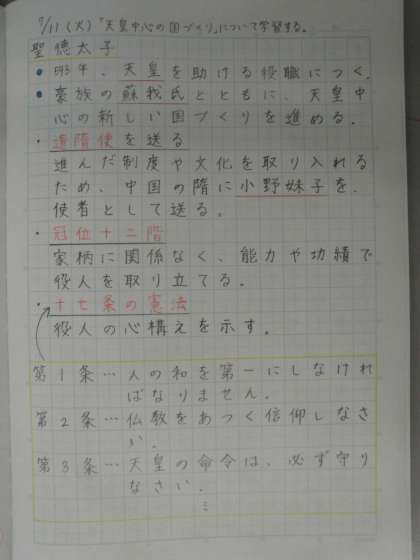 9/11(火)「天皇中心の国づくり」について学習する。
聖徳太子
● 593年、天皇を助ける役職につく。
● 豪族の蘇我氏とともに、天皇中
心の新しい国づくりを進める。
・遣隋使を送る
進んだ制度や文化を取り入れる
ため、中国の隋に小野妹子を、
使者として送る。
・冠位十二階
家柄に関係なく、能力や功績で
役人を取り立てる。
・十七条の憲法
役人の心構えを示す。
第1条…人の和を第一にしなけれ
ばなりません。
第2条…仏教をあつく信仰しなさ
い。
第3条…天皇の命令は、必ず守り
なさい。
⋮